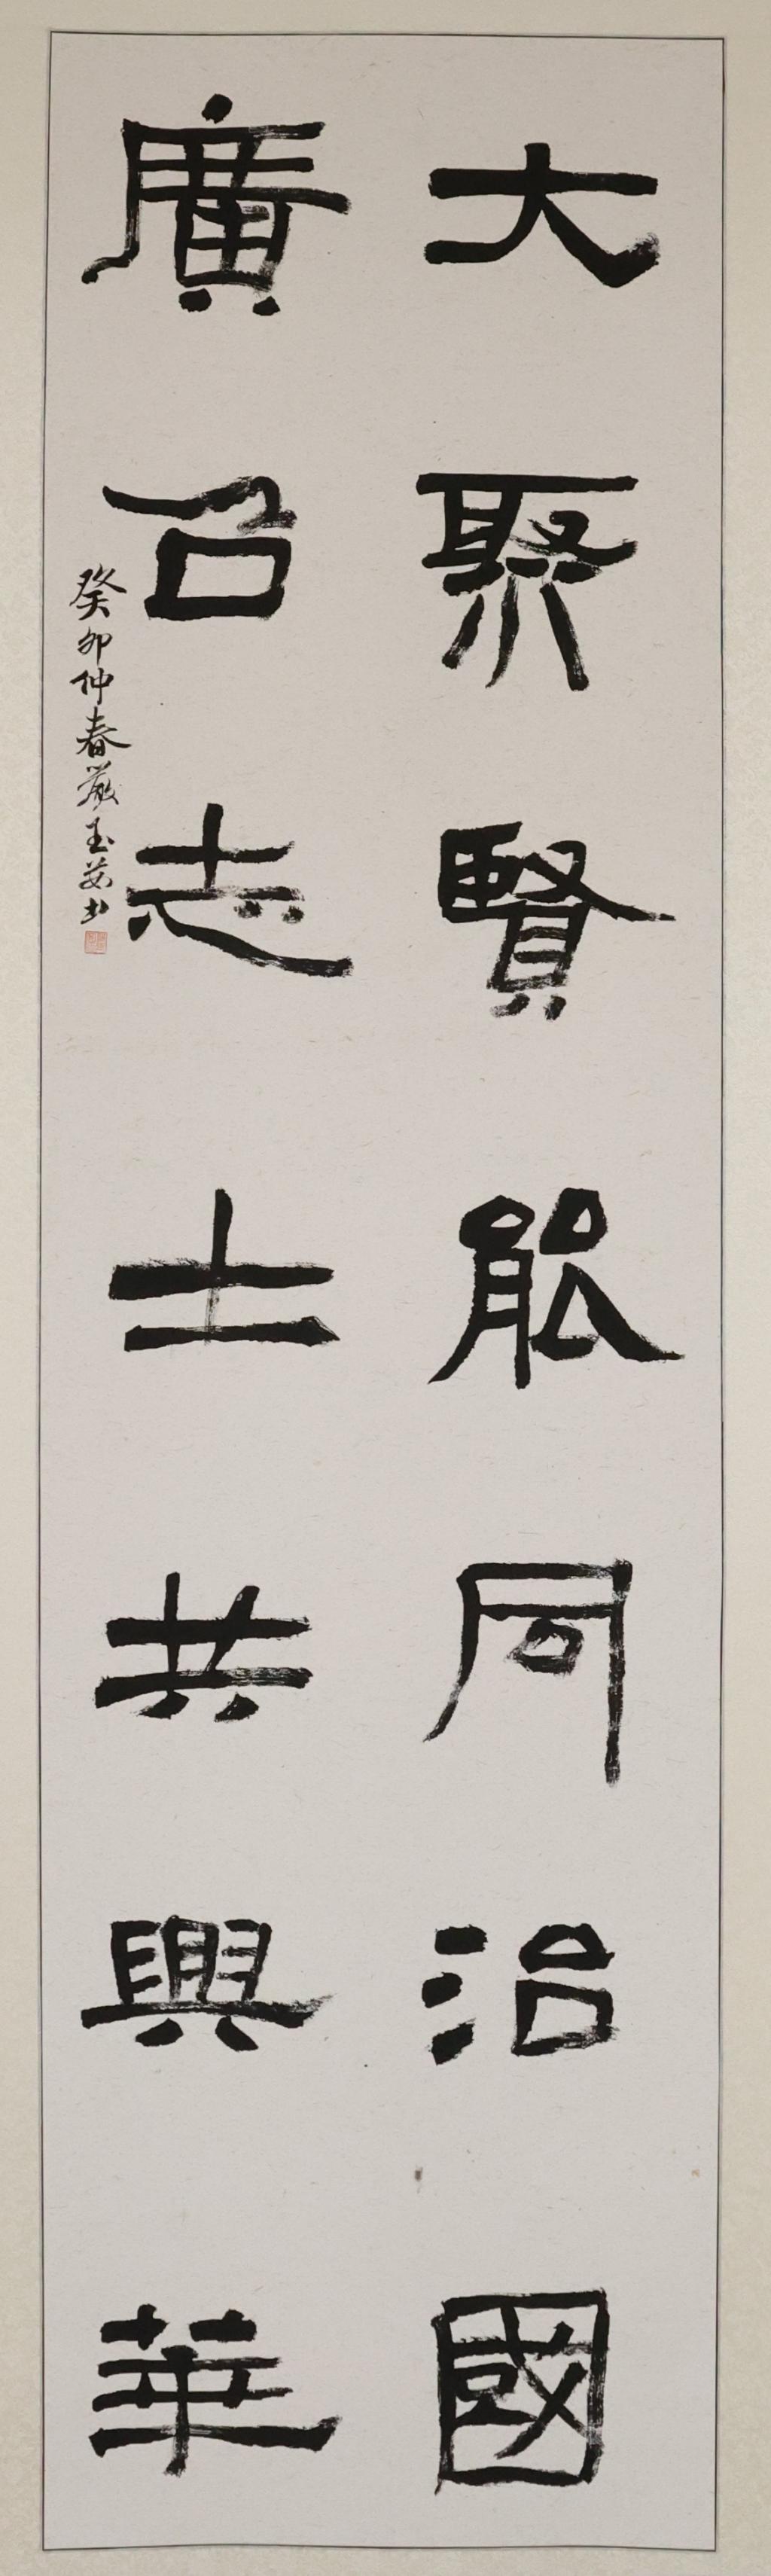 大聚賢能同治國
廣召志士共興華
癸卯仲春嚴玉
書